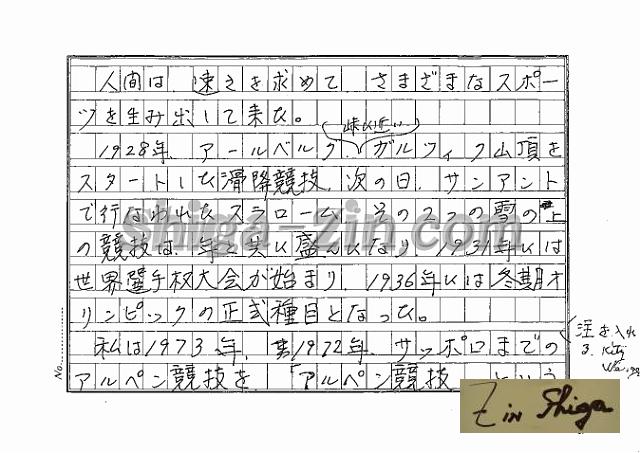 人間は、速さを求めて、さまざまなスポー
ツを生み出して来た。
1928年、アールベルク、ガルツィク山頂を
スタートした滑降競技、次の日、サンアント
で行なわれたスラローム、その2つの雪の上
の競技は、年と共に盛んになり、1931年には
世界選手权大会が始まり、1936年には冬期オ
リンピックの正式種目となった。
私は1973年、1972年、サッポロまでの
アルペン競技を、「アルペン競技 という
注を入れ
る.
No.
Shiga-Zin.com
Zin Shiga